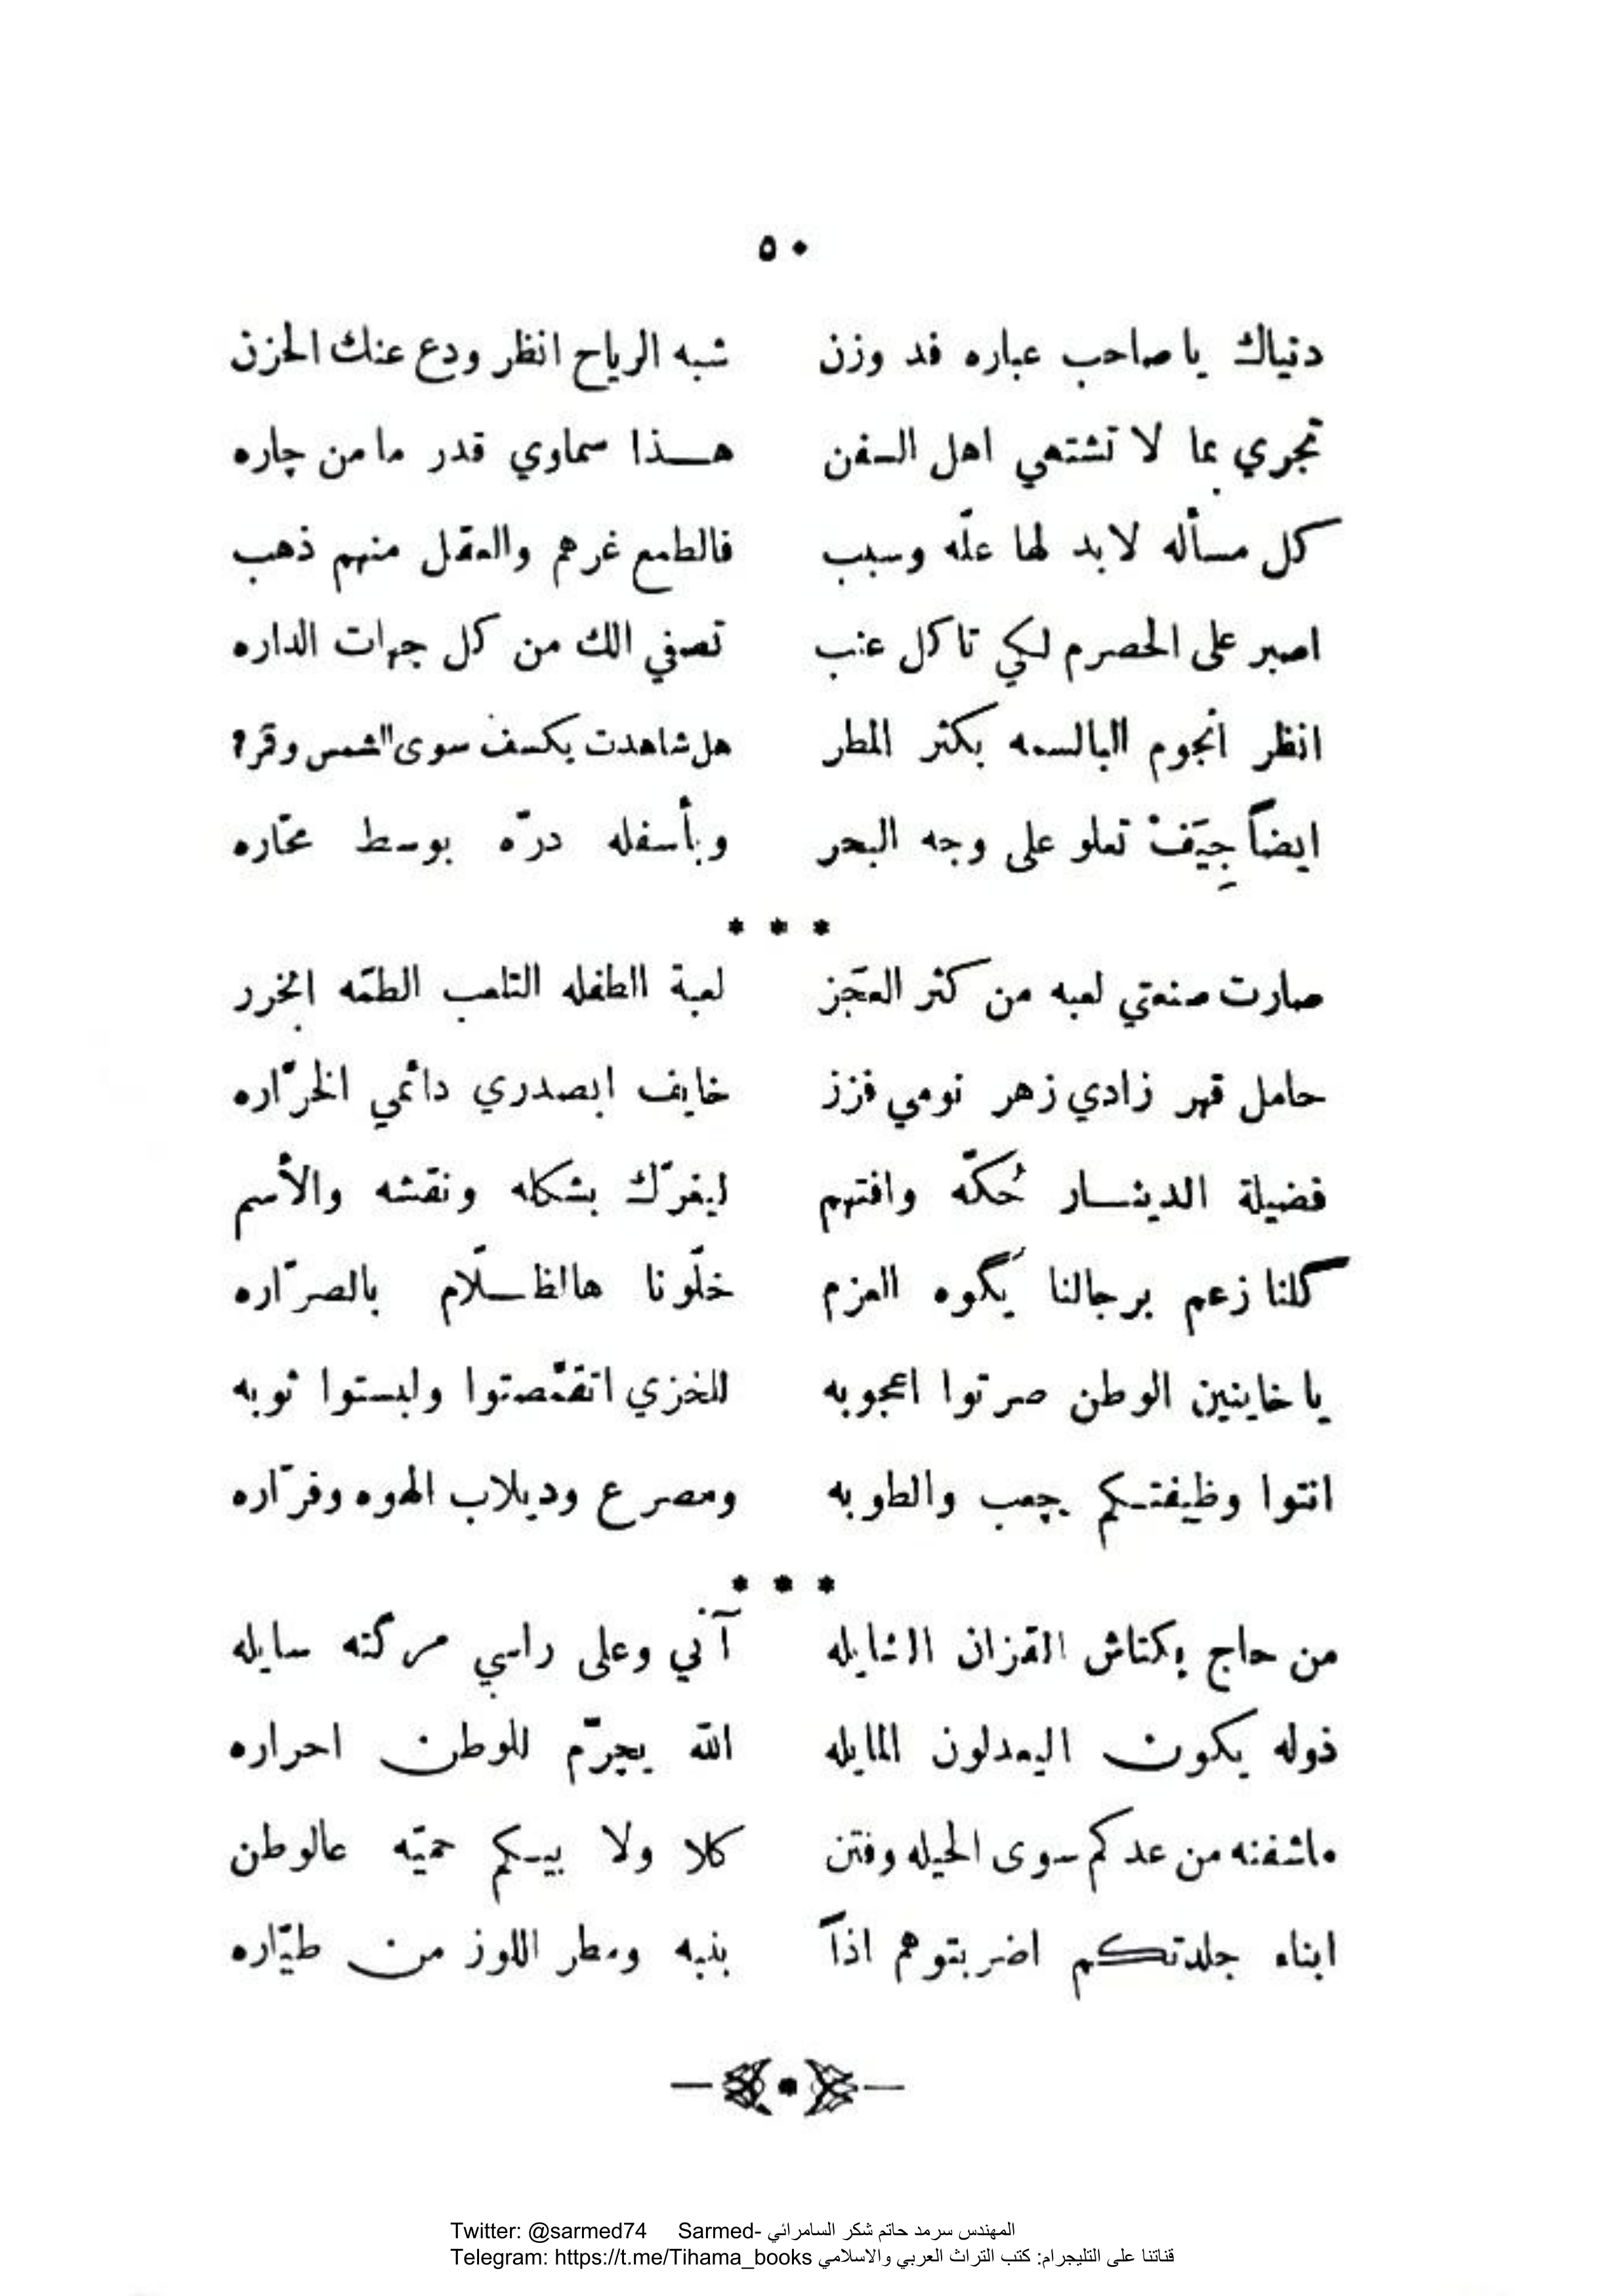 ٥٠
دنياك يا صاحب عباره فد وزن شبه الرياح انظر ودع عنك الحزن
تجري بما لا تشتهي اهل السفن هـــذا سماوي قدر ما من چاره
كل مسأله لا بد لها علّه وسبب فالطمع غرهم والعقل منهم ذهب
اصبر على الحصرم لكي تاكل عنب تصفي الك من كل جهات الداره
انظر انجوم البالسمه بكثر المطر هل شاهدت يكسف سوى الشمس وقمر؟
ايضاً جِيَفْ تعلو على وجه البحر وبأسفله درّه بوسط محّاره
* * *
صارت صنعتي لعبه من كثر العجَز لعبة الطفله التلعب الطمّه ابخرز
حامل قهر زادي زهر نومي فزز خايف ابصدري دائمي الخرّاره
فضيلة الدينـــار حُكّه وافتهم ليغرّك بشكله ونقشه والأسم
كلنا زعم برجالنا يَگوه العزم خلّونا هالظـــلّام بالصرّاره
يا خاينين الوطن صرتوا اعجوبه للخزي اتقمّصتوا ولبستوا ثوبه
انتوا وظيفتـكم چعب والطوبه ومصرع وديلاب الهوه وفرّاره
* * *
من حاج بكتاش القزان الشايله آني وعلى راسي مركته سايله
ذوله يكون اليعدلون المايله الله يجرّم للوطن احراره
ماشفنه من عدكم سوى الحيله وفتن كلا ولا بيـكم حميّه عالوطن
ابناء جلدتكم اضربتوهم اذاً بنبه ومطر اللوز من طيّاره
Twitter: @sarmed74 Sarmed- المهندس سرمد حاتم شكر السامرائي
Telegram: https://t.me/Tihama_books قناتنا على التليجرام: كتب التراث العربي والاسلامي